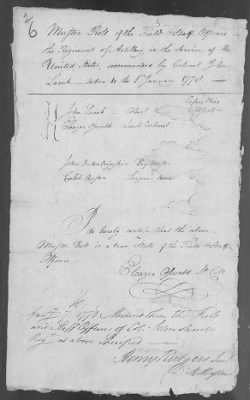 6
Muster Role of the Field & Staff Officers in
the Regiment of Artillery in the Service of the
United States, commanded by Colonel John
Lamb taken to the 1st January 1778
John Lamb Colonel
Eleazer Oswald Lieut Colonel
Caleb Surgeon
I do hereby certify that the above
Muster Role is a true State of the Field & Staff
Officers
Eleazer Oswald Lt Col
Jany 7th 1778 Mustered then the Field
and Staff Officers of Col. John Lamb's
Reg as above Specified
Henry Rutgers Junr